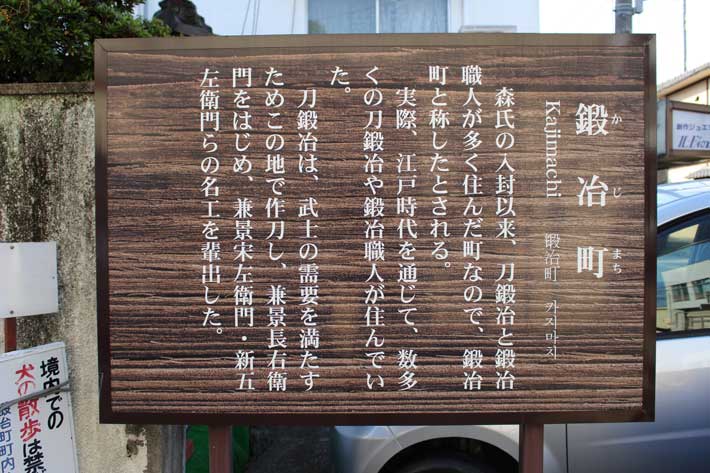 鍛冶町
かじまち
Kajimachi
鍛冶町 카지마치
森氏の入封以来、刀鍛冶と鍛冶
職人が多く住んだ町なので、鍛冶
町と称したとされる。
実際、江戸時代を通じて、数多
くの刀鍛冶や鍛冶職人が住んでい
た。
刀鍛冶は、武士の需要を満たす
ためこの地で作刀し、兼景長右衛
門をはじめ、兼景宋左衛門・新五
左衛門らの名工を輩出した。
創作ジュエ
境内での
犬の散歩は禁
鍛治町町内